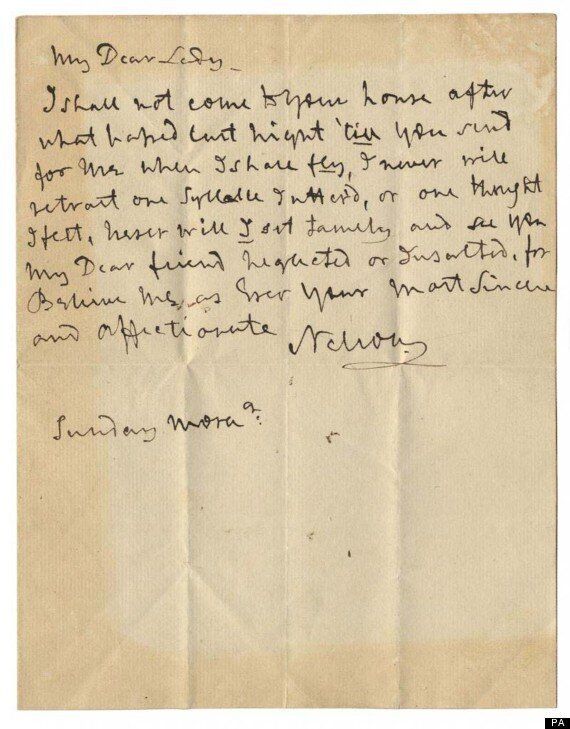 My Dear Lady -
I shall not come to your house after
what hapned last night 'till you send
for me when I shall fly, I never will
retract one Syllable I utter'd, or one thought
I felt, Never will I set tamely and see you
My Dear friend Neglected or Insulted, for
Believe Me as Ever your most Sincere
and affectionate Nelson
Sunday Morng.
PA